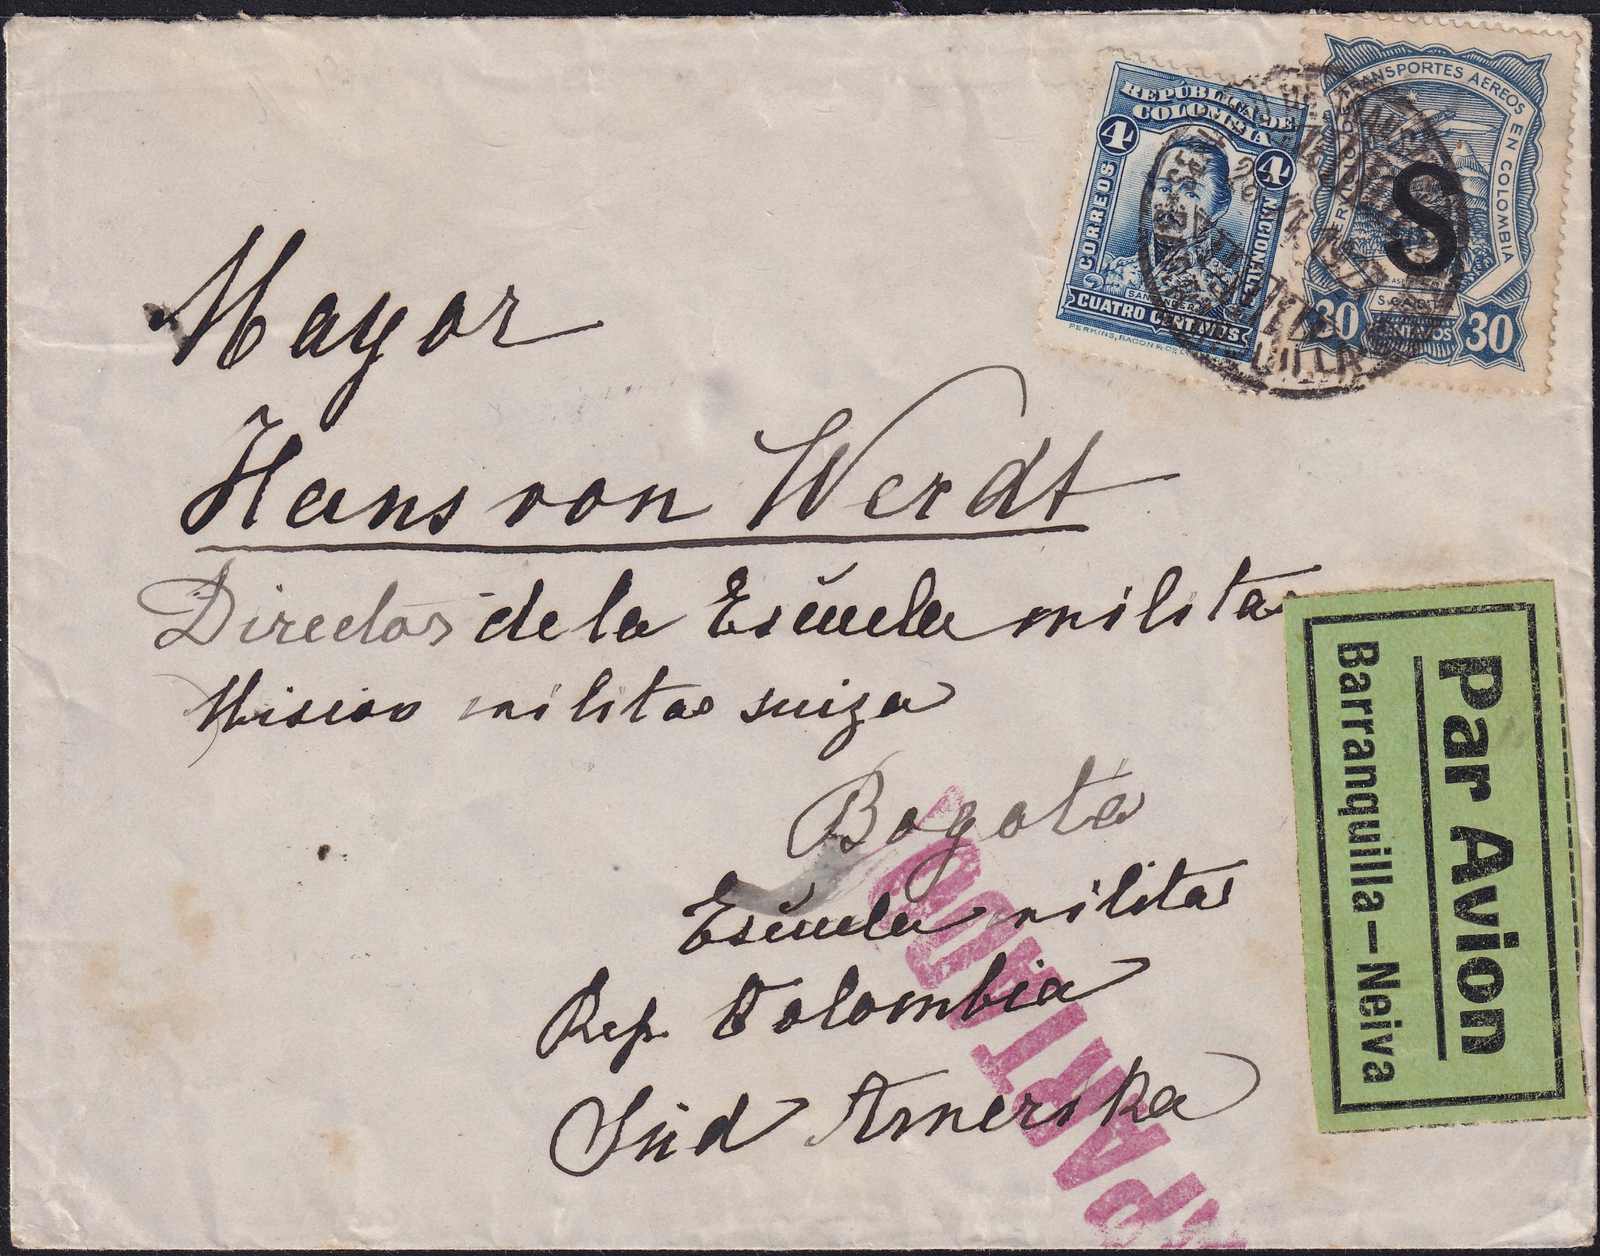 REPÚBLICA DE
COLOMBIA
4 4
CORREOS
NACIONALES
CUATRO CENTAVOS
PERKINS, BACON & CO
TRANSPORTES AEREOS EN COLOMBIA
S
30 CENTAVOS 30
Mayor
Hans von Werdt
Director de la Escuela militar
Mision militar suiza
Bogotá
Escuela militar
Rep. Colombia
Süd Amerika
Par Avion
Barranquilla–Neiva
APARTADO